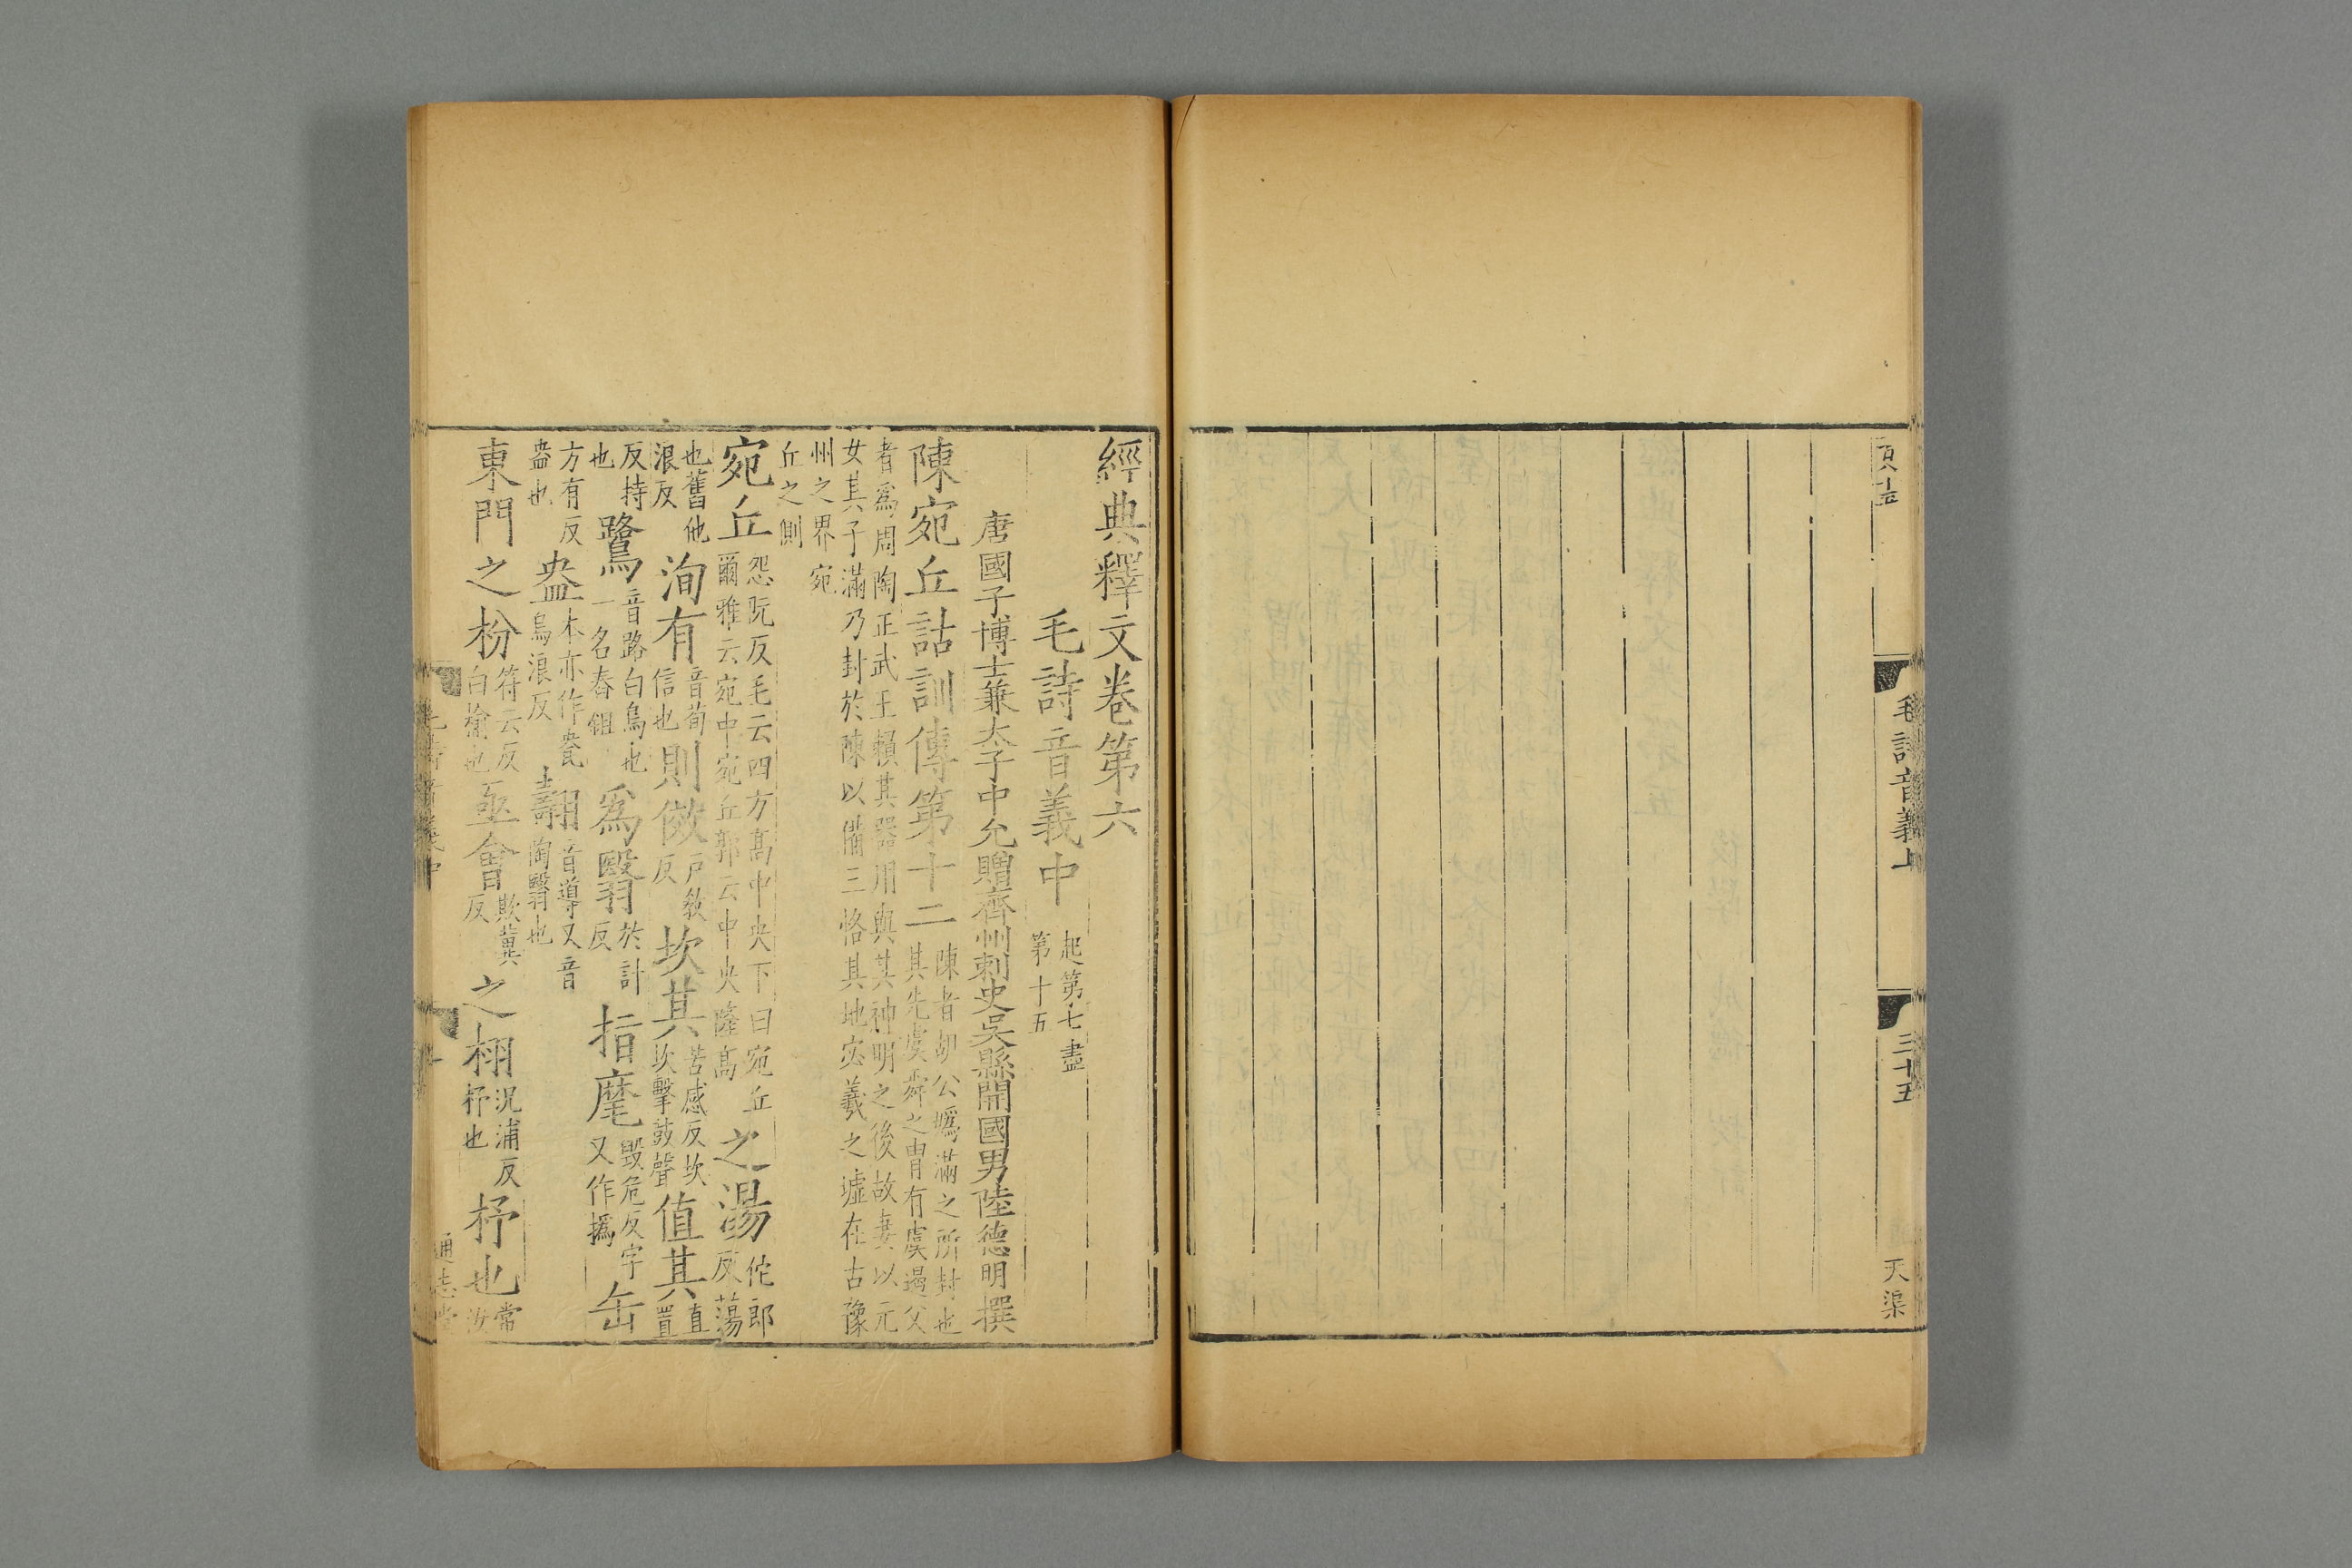 百八十五
毛詩音義上
三十五
天渠
經典釋文卷第六
毛詩音義中
起第七盡
第十五
唐國子博士兼太子中允贈齊州刺史吳縣開國男陸德明撰
陳宛丘詁訓傳第十二
陳者胡公嬀滿之所封也
其先虞舜之冑有虞遏父
者爲周陶正武王賴其器用與其神明之後故妻以元
女其子滿乃封於陳以備三恪其地宓羲之墟在古豫
州之界宛
丘之側
宛丘
怨阮反毛云四方髙中央下曰宛丘
爾雅云宛中宛丘郭云中央隆髙
之湯
佗郎
反蕩
也舊他
浪反
洵有
音荀
信也
則傚
戸敎
反
坎其
苦感反坎
坎擊鼓聲
值其
直
置
反持
也
鷺
音路白鳥也
一名舂鉏
爲翳
於計
反
指麾
毀危反字
又作撝
缶
方有反
盎也
盎
本亦作瓮
烏浪反
翿
音導又音
陶翳也
東門之枌
符云反
白榆也
亟會
欺冀
反
之栩
況浦反
杼也
杼也
常
汝
通志堂